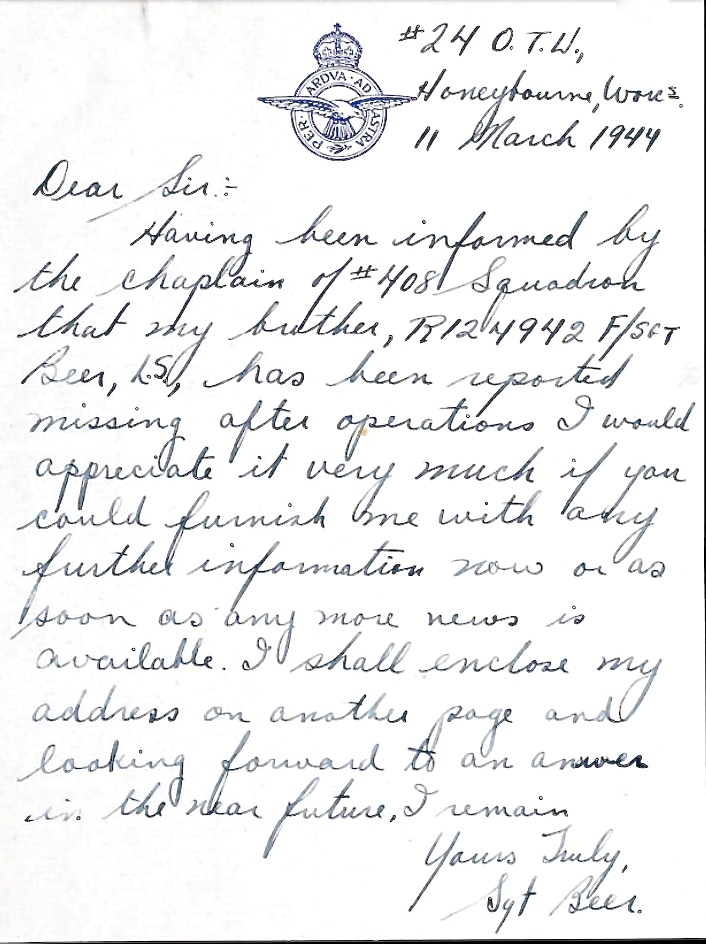 #24 O.T.U.,
PER · ARDVA · AD ASTRA
Honeybourne, Worcs.
11 March 1944
Dear Sir:-
Having been informed by
the chaplain of #408 Squadron
that my brother, R124942 F/SGT
Beer, L.S., has been reported
missing after operations I would
appreciate it very much if you
could furnish me with any
further information now or as
soon as any more news is
available. I shall enclose my
address on another page and
looking forward to an answer
in the near future, I remain
Yours Truly,
Sgt Beer.